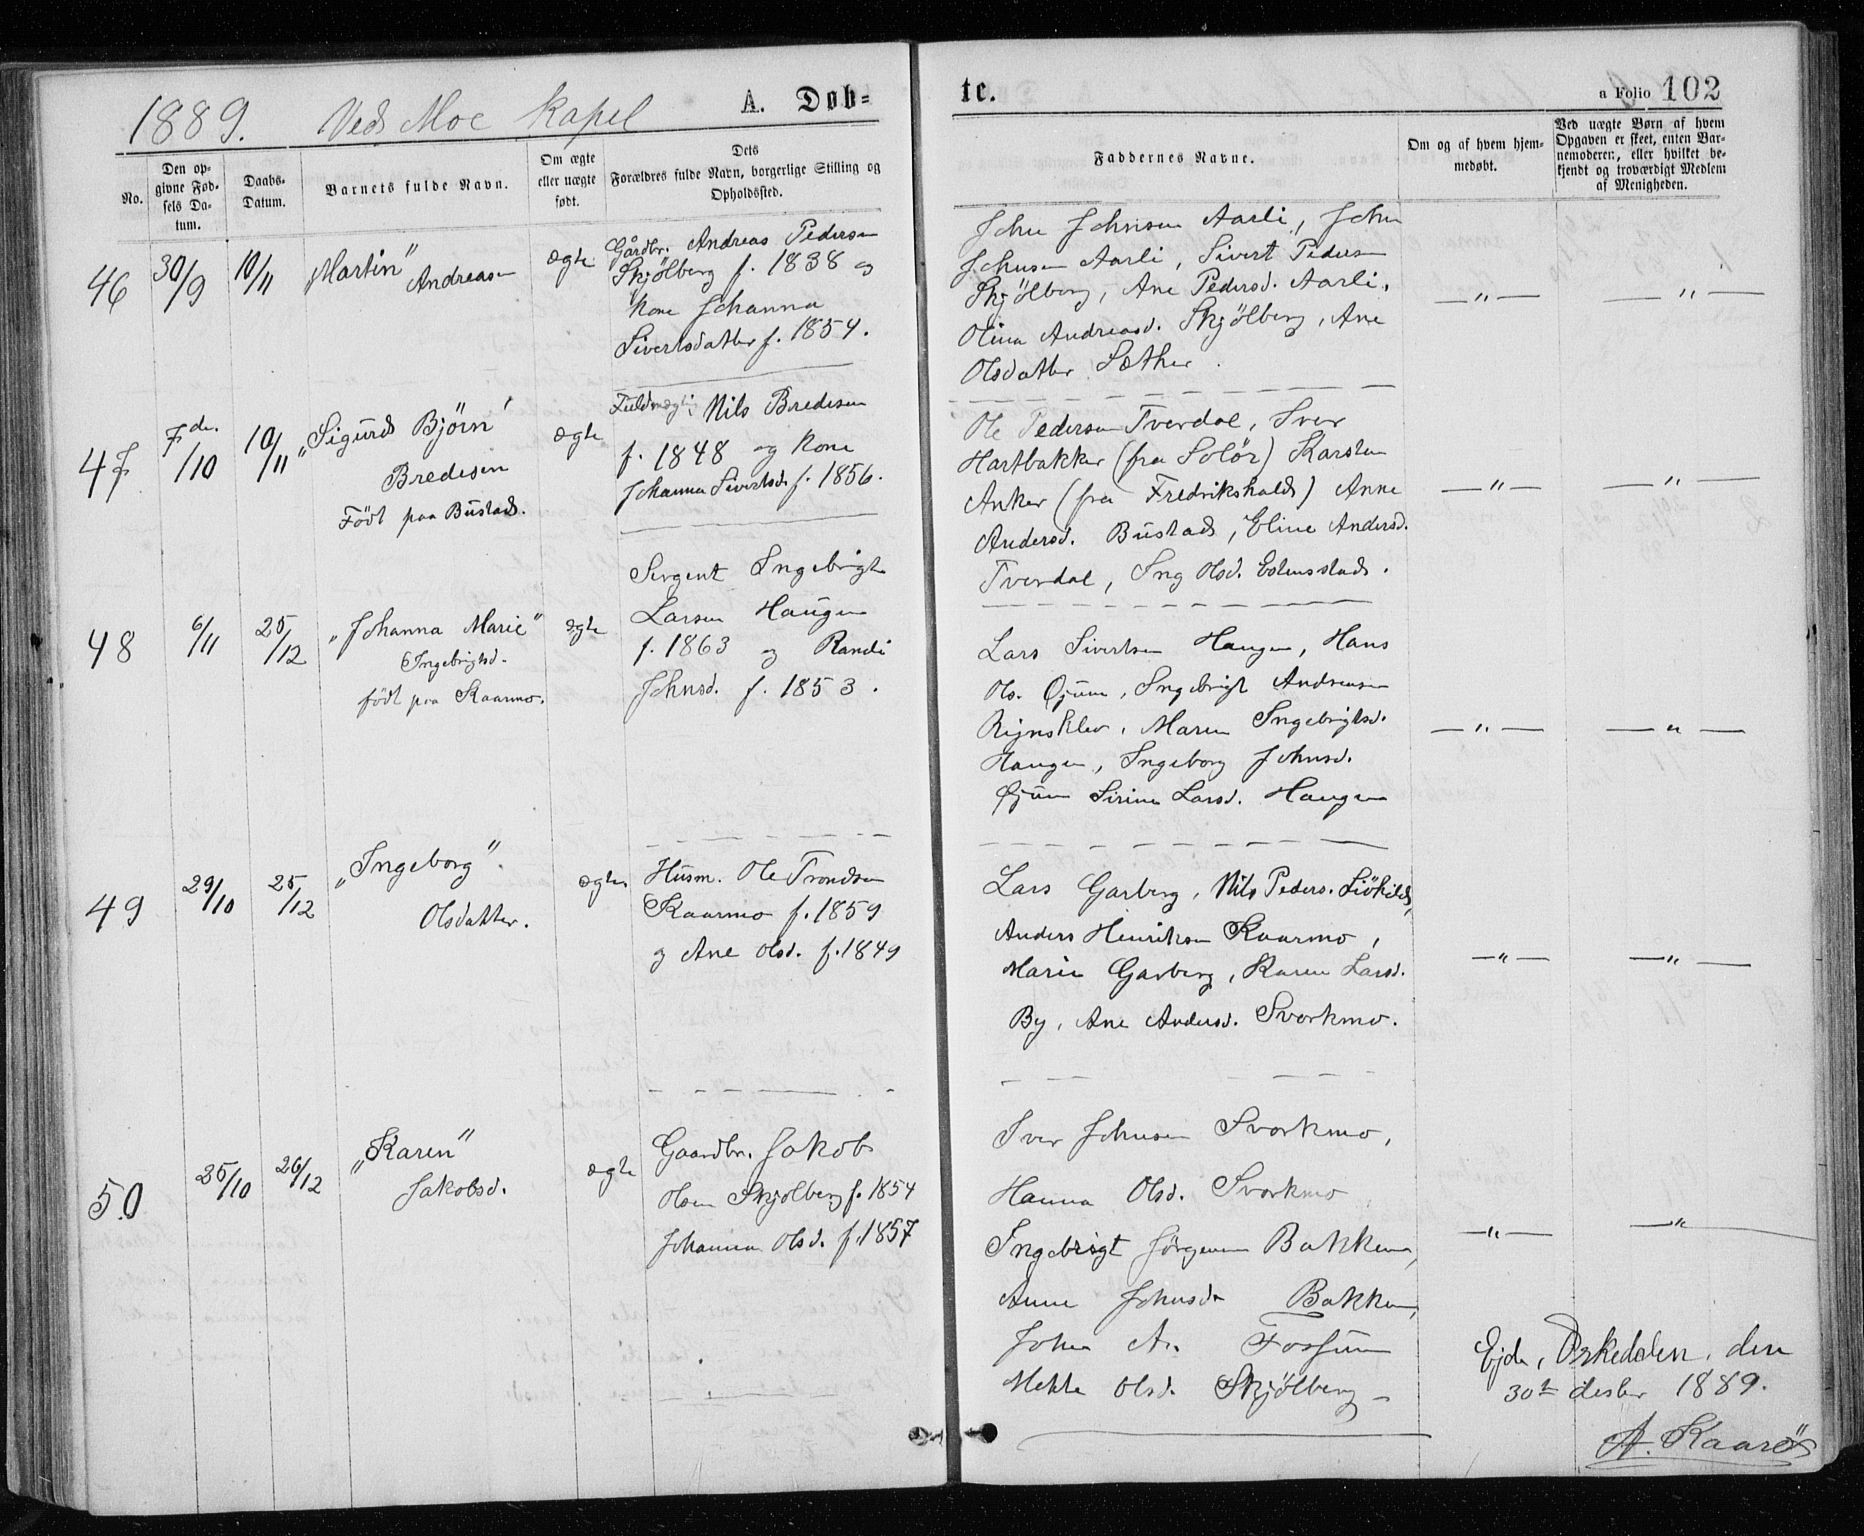 1889. Ved Moe Kapel A. Døb=
No.
Den opgivne Fødsels Datum.
Daabs-Datum.
Barnets fulde Navn.
Om ægte eller uægte født.
Dets Forældres fulde Navn, borgerlige Stilling og Opholdssted.
46 30/9 10/11 „Martin” Andreasen ægte
Gårdbr. Andreas Pedersen
Skjölberg f. 1838 og
Kone Johanna
Sivertsdatter f. 1854.
47 7de/10 10/11 „Sigurd Björn” ægte
Bredesen
Födt paa Bustad.
Fuldmægtig Nils Bredesen
f. 1848 og Kone
Johanna Sivertsd. f. 1856.
48 6/11 25/12 „Johanna Marie” ægte
Ingebrigtsd.
födt paa Kaarmo.
Sergent Ingebrigt
Larsen Haugen
f. 1863 og Randi
Johnsd. f. 1853.
49 29/10 25/12 „Ingeborg” ægte
Olsdatter.
Husm. Ole Trondsen
Kaarmo f. 1859
og Ane Olsd. f. 1849
50 25/10 26/12 „Karen” ægte
Jakobsd.
Gaardbr. Jakob
Olsen Skjølberg f. 1854
Johanna Olsd. f. 1857
te. a Folio 102
Faddernes Navne.
Om og af hvem hjemmedøbt.
Ved uægte Børn af hvem Opgaven er skeet, enten Barnemoderen, eller hvilket bekjendt og troværdigt Medlem af Menigheden.
John Johnsen Aarli, John
Johnsen Aarli, Sivert Pedersen
Skjölberg, Ane Pedersd. Aarli, — „ — — „ —
Olina Andreasd. Skjölberg, Ane
Olsdatter Sæther.
Ole Pedersen Tverdal, Iver
Hartbakken (fra Solör) Karsten
Anker (fra Fredrikshald) Anne — „ — — „ —
Andersd. Bustad, Eline Andersd.
Tverdal, Ing Olsd. Estensstad.
Lars Sivertsen Haugen, Hans
Ols. Öjum, Ingebrigt Andreasen
Maren Ingebrigtsd. — „ — — „ —
Haugen, Ingeborg Johnsd.
Øjum Sirine Larsd. Haugen
Lars Garberg, Nils Peders.
Anders Henriksen Kaarmo,
Marie Garberg, Karen Larsd. — „ — — „ —
By, Ane Andersd. Svorkmo.
Iver Johnsen Svorkmo,
Hanna Olsd. Svorkmo
Ingebrigt Jörgensen Bakken, — „ — — „ —
Anne Johnsd. Bakken,
John A. Fossum
Mette Olsd. Skjölberg —
Orkedalen, den
30te desbr 1889.
A. Kaarö